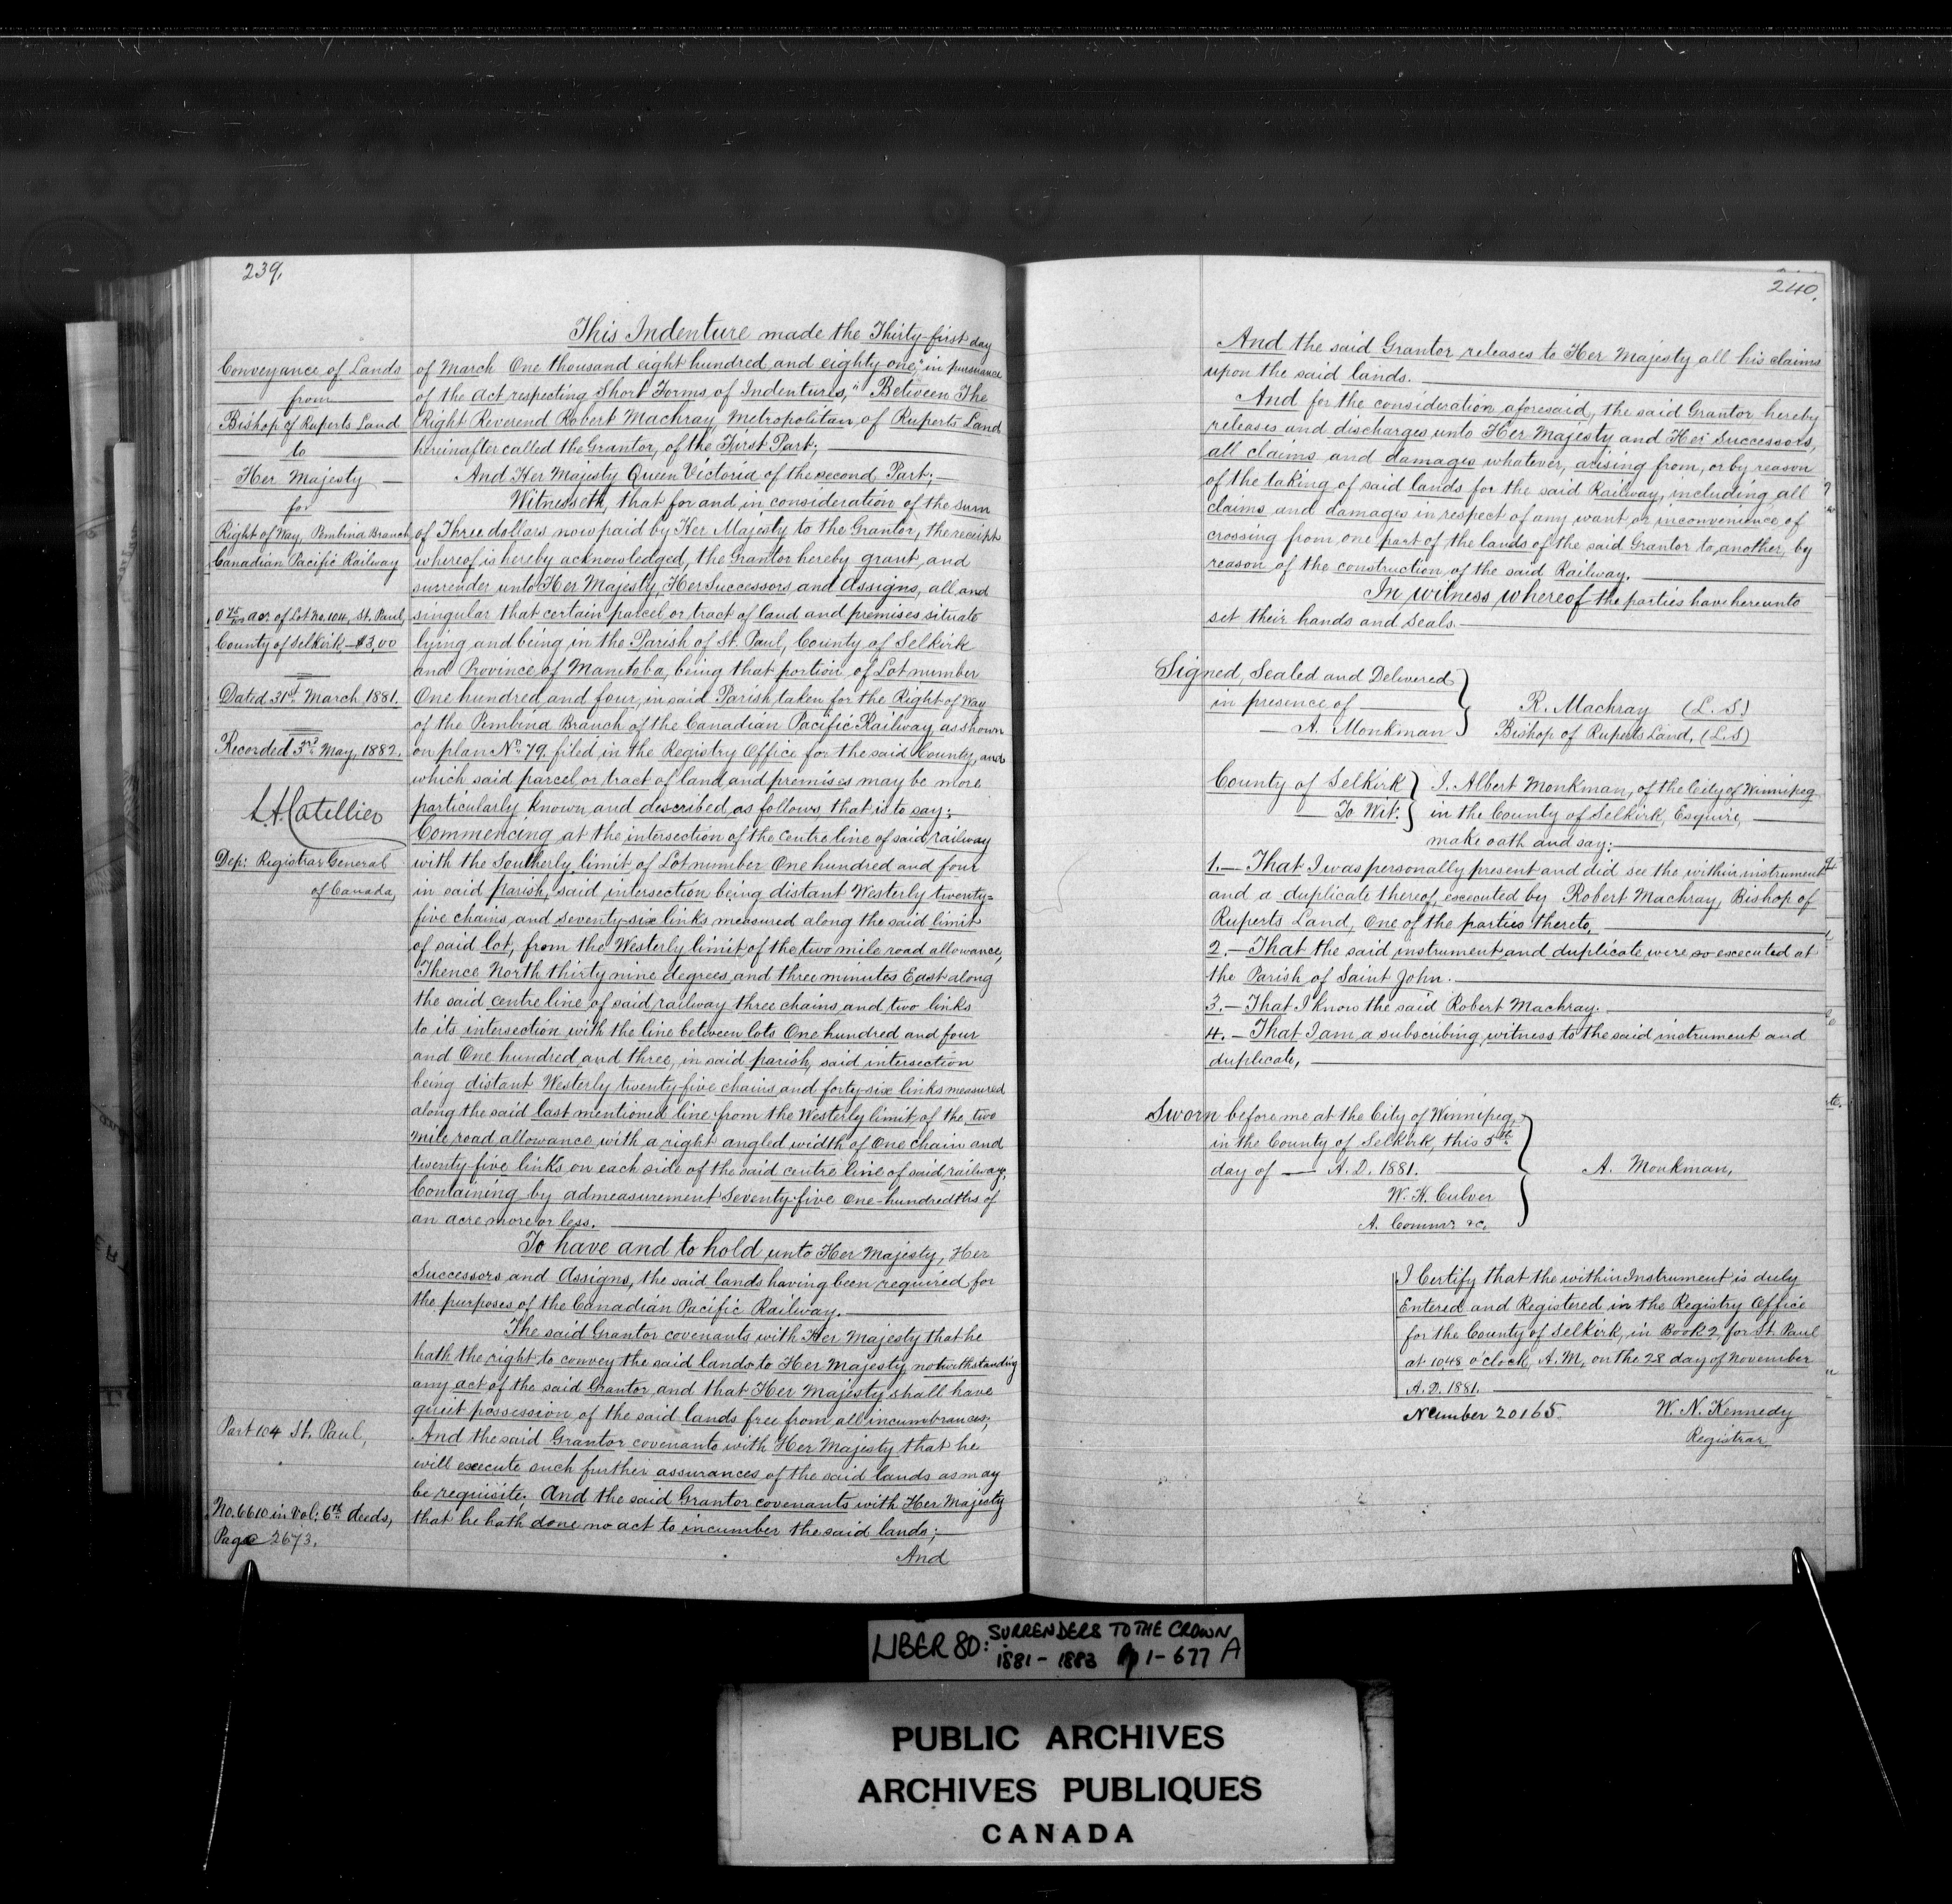 239.
Conveyance of Lands
from
Bishop of Ruperts Land
to
Her Majesty
for
Right of Way, Pembina Branch
Canadian Pacific Railway
0 75/100 ac. of Lot No. 104, St. Paul,
County of Selkirk - $3,00
Dated 31st March 1881.
Recorded 3rd May, 1882.
L.A. Catellier
Dep: Registrar General
of Canada,
Part 104 St. Paul,
No. 6610 in Vol: 6th deeds,
Page 2673.
This Indenture made the Thirty-first day
of March One thousand eight hundred and eighty one, "in pursuance
of the Act respecting Short Forms of Indentures," Between The
Right Reverend Robert Machray, Metropolitan of Ruperts Land
hereinafter called the Grantor, of the First Part;
And Her Majesty Queen Victoria of the second Part;
Witnesseth, that for and in consideration of the sum
of Three dollars now paid by Her Majesty to the Grantor, the receipt
whereof is hereby acknowledged, the Grantor hereby grant and
surrender unto Her Majesty, Her Successors and Assigns, all and
singular that certain parcel or tract of land and premises situate
lying and being in the Parish of St. Paul, County of Selkirk
and Province of Manitoba, being that portion of Lot number
One hundred and four, in said Parish, taken for the Right of Way
of the Pembina Branch of the Canadian Pacific Railway as shown
on plan No. 79. filed in the Registry Office for the said County, and
which said parcel or tract of land and premises may be more
particularly known and described as follows, that is to say:
Commencing at the intersection of the centre line of said railway
with the Southerly limit of Lot number One hundred and four
in said parish, said intersection being distant Westerly twenty=
five chains and seventy-six links measured along the said limit
of said lot, from the Westerly limit of the two mile road allowance,
Thence North thirty nine degrees and three minutes East along
the said centre line of said railway three chains and two links
to its intersection with the line between lots One hundred and four
and One hundred and three, in said parish, said intersection
being distant Westerly twenty-five chains and forty-six links measured
along the said last mentioned line from the Westerly limit of the two
mile road allowance with a right angled width of One chain and
twenty-five links on each side of the said centre line of said railway,
Containing by admeasurement Seventy-five One-hundredths of
an acre more or less.
To have and to hold unto Her Majesty, Her
Successors and Assigns, the said lands having been required for
the purposes of the Canadian Pacific Railway.
The said Grantor covenants with Her Majesty that he
hath the right to convey the said lands to Her Majesty, notwithstanding
any act of the said Grantor and that Her Majesty shall have
quiet possession of the said lands free from all incumbrances;
And the said Grantor covenants with Her Majesty that he
will execute such further assurances of the said lands as may
be requisite; And the said Grantor covenants with Her Majesty
that he hath done no act to incumber the said lands;
And
240.
And the said Grantor releases to Her Majesty all his claims
upon the said lands.
And for the consideration aforesaid, the said Grantor hereby
releases and discharges unto Her Majesty and Her Successors,
all claims and damages whatever, arising from, or by reason
of the taking of said lands for the said Railway, including all
claims and damages in respect of any want or inconvenience of
crossing from one part of the lands of the said Grantor to another, by
reason of the construction of the said Railway.
In witness whereof the parties have hereunto
set their hands and seals.
Signed, Sealed and Delivered
in presence of
A. Monkman
R. Machray (L.S)
Bishop of Ruperts Land, (L.S)
County of Selkirk
To Wit:
I, Albert Monkman, of the City of Winnipeg
in the County of Selkirk, Esquire,
make oath and say:
1. - That I was personally present and did see the within instrument
and a duplicate thereof, executed by Robert Machray, Bishop of
Ruperts Land, One of the parties thereto,
2. - That the said instrument and duplicate were so executed at
the Parish of Saint John.
3. - That I know the said Robert Machray.
4. - That I am a subscribing witness to the said instrument and
duplicate,
Sworn before me at the City of Winnipeg,
in the County of Selkirk, this 5th
day of — A.D. 1881.
W. H. Culver
A. Commr &c.
A. Monkman,
I Certify that the within Instrument is duly
Entered and Registered in the Registry Office
for the County of Selkirk, in Book 2 for St. Paul
at 10.48 o'clock, A.M, on the 28 day of November
A.D. 1881.
Number 20165.
W. N. Kennedy
Registrar
LIBER 80: SURRENDERS TO THE CROWN
1881 - 1883 pp 1 - 677 A
PUBLIC ARCHIVES
ARCHIVES PUBLIQUES
CANADA